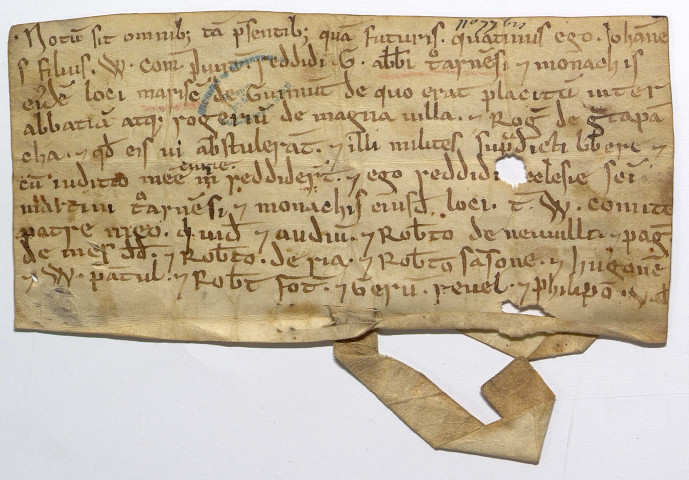 Notū sit omnib; tā p̄sentib; quā futuris. quatinus ego. Johāne
s filius. W. com̄ reddidi. G. abb̄i tarnēsi ⁊ monachis
eiusdē loci mariscū de Gurmūt de quo erat placitū inter
abbatiā atq; rogeriū de magna uilla. ⁊ Roḡ de
⁊ qđ eis ui abstulerat̄. ⁊ illi milites sup̄dicti libere ⁊
cū iuditio m̄ reddiderūt̄. ⁊ ego reddidi eclesie sci
martini tarnēsi. ⁊ monachis eiusđ. loci. t̄. W. comite
patre meo. q̄ uiđ ⁊ audiuit̄. ⁊ Rob̄to de neuuilla. ⁊ paḡ
de mes đđ. ⁊ Rob̄to. de ria. ⁊ Rob̄to sāsone. ⁊ hugone
⁊ W. patul̄. ⁊ Rob̄t sot̄. ⁊ reuel. ⁊ philippo.